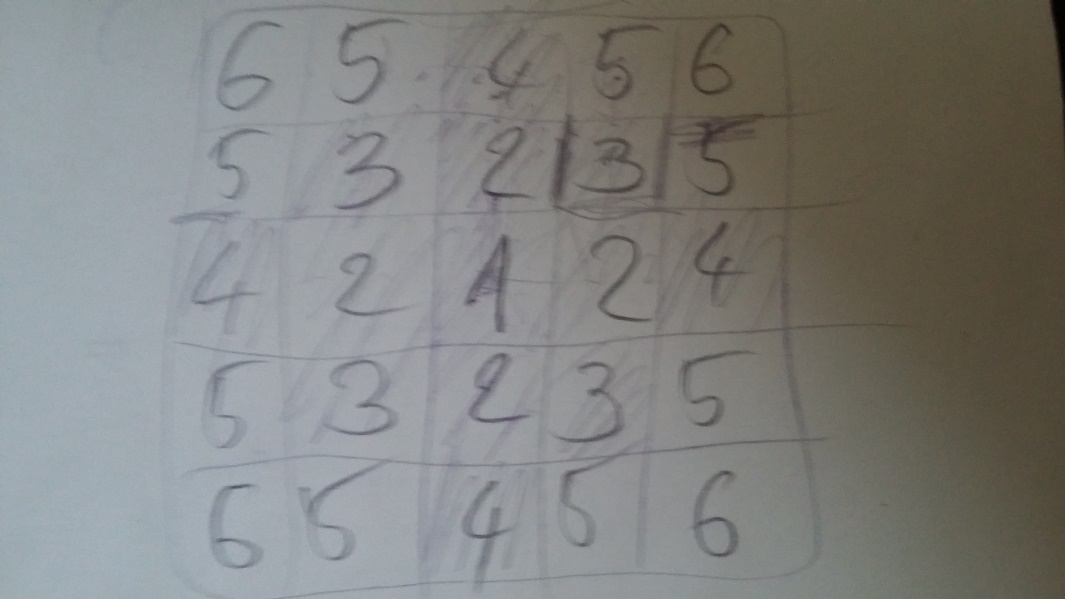 6 5 4 5 6
5 3 2 3 5
4 2 1 2 4
5 3 2 3 5
6 5 4 5 6